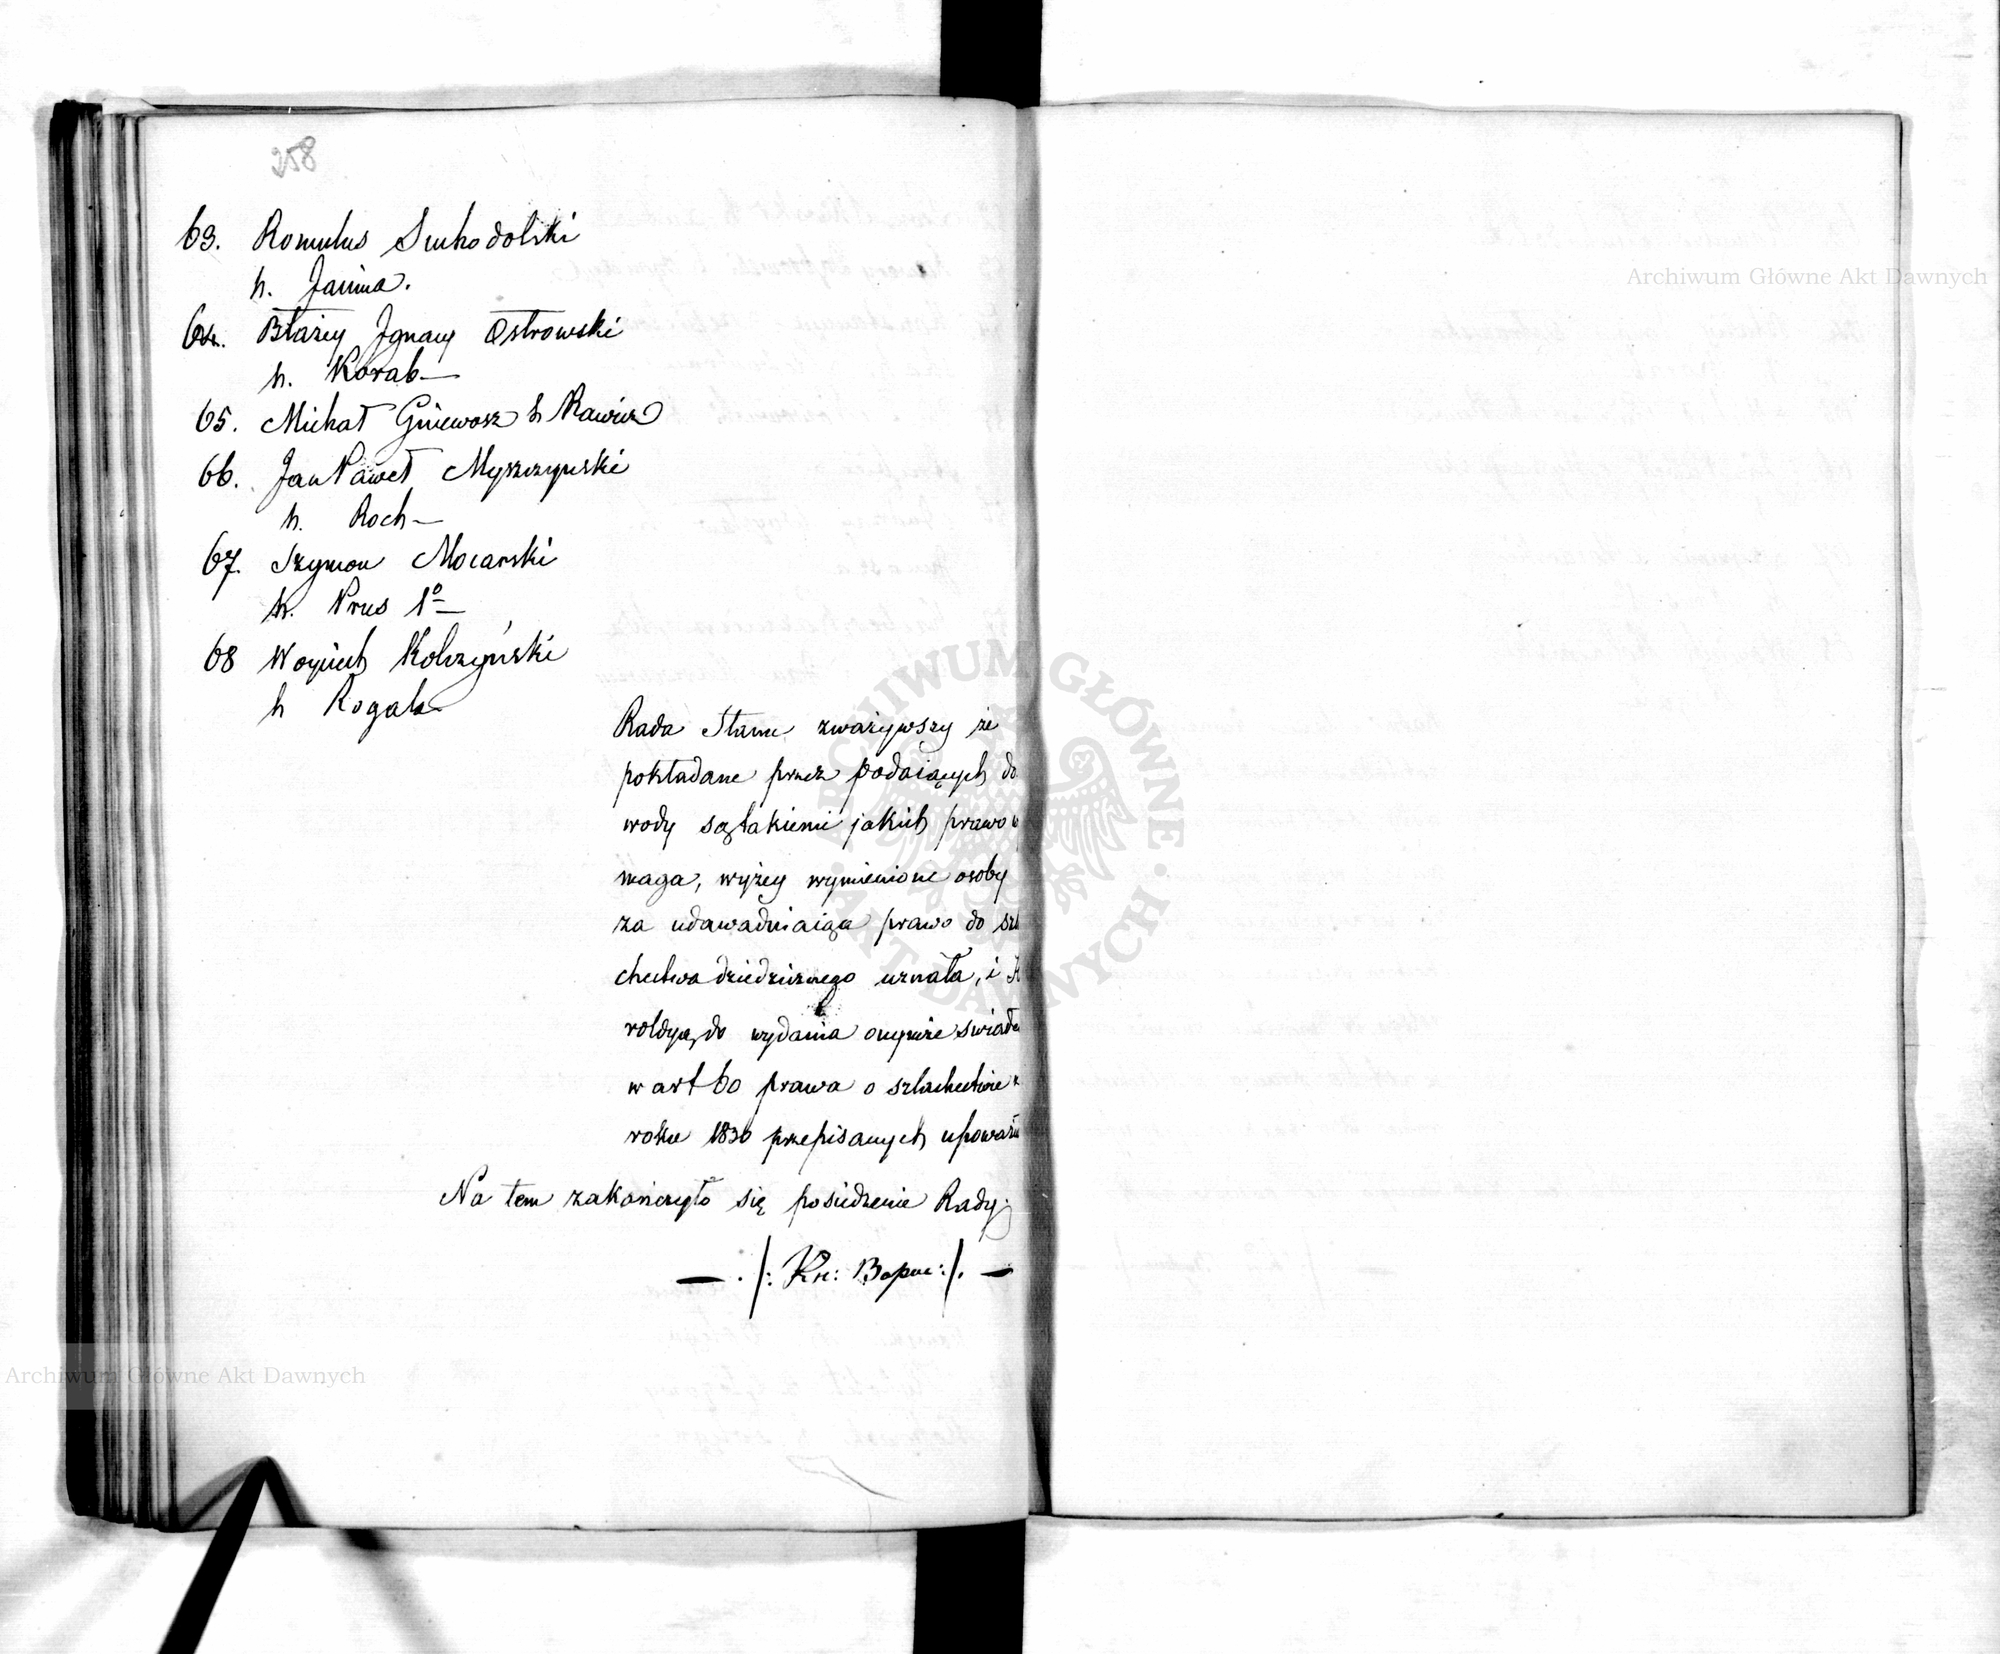 258
63. Romulus Suchodolski
h. Janina.
64. Błażey Jgnacy Ostrowski
h. Korab—
65. Michał Gniewosz h Rawicz
66. Jan Paweł Myszczyński
h. Roch—
67. Szymon Mocarski
h. Prus 1º—
68 Woyciech Kobrzyński
h Rogala
Rada Stanu zważywszy że
pokładane przez podaiących do
wody są takiemi jakich prawo wy
maga, wyżey wymienione osoby
za udawadniaiąca prawo do szla
chectwa dziedzicznego uznała, i He
roldyą do wydania onymże świade
w art 60 prawa o szlachectwie z
roku 1836 przepisanych upoważni
Na tem zakończyło się posiedzenie Rady.
— ./: Кн: :/. —
Archiwum Główne Akt Dawnych
Archiwum Główne Akt Dawnych
ARCHIWUM GŁÓWNE · AKT DAWNYCH ·